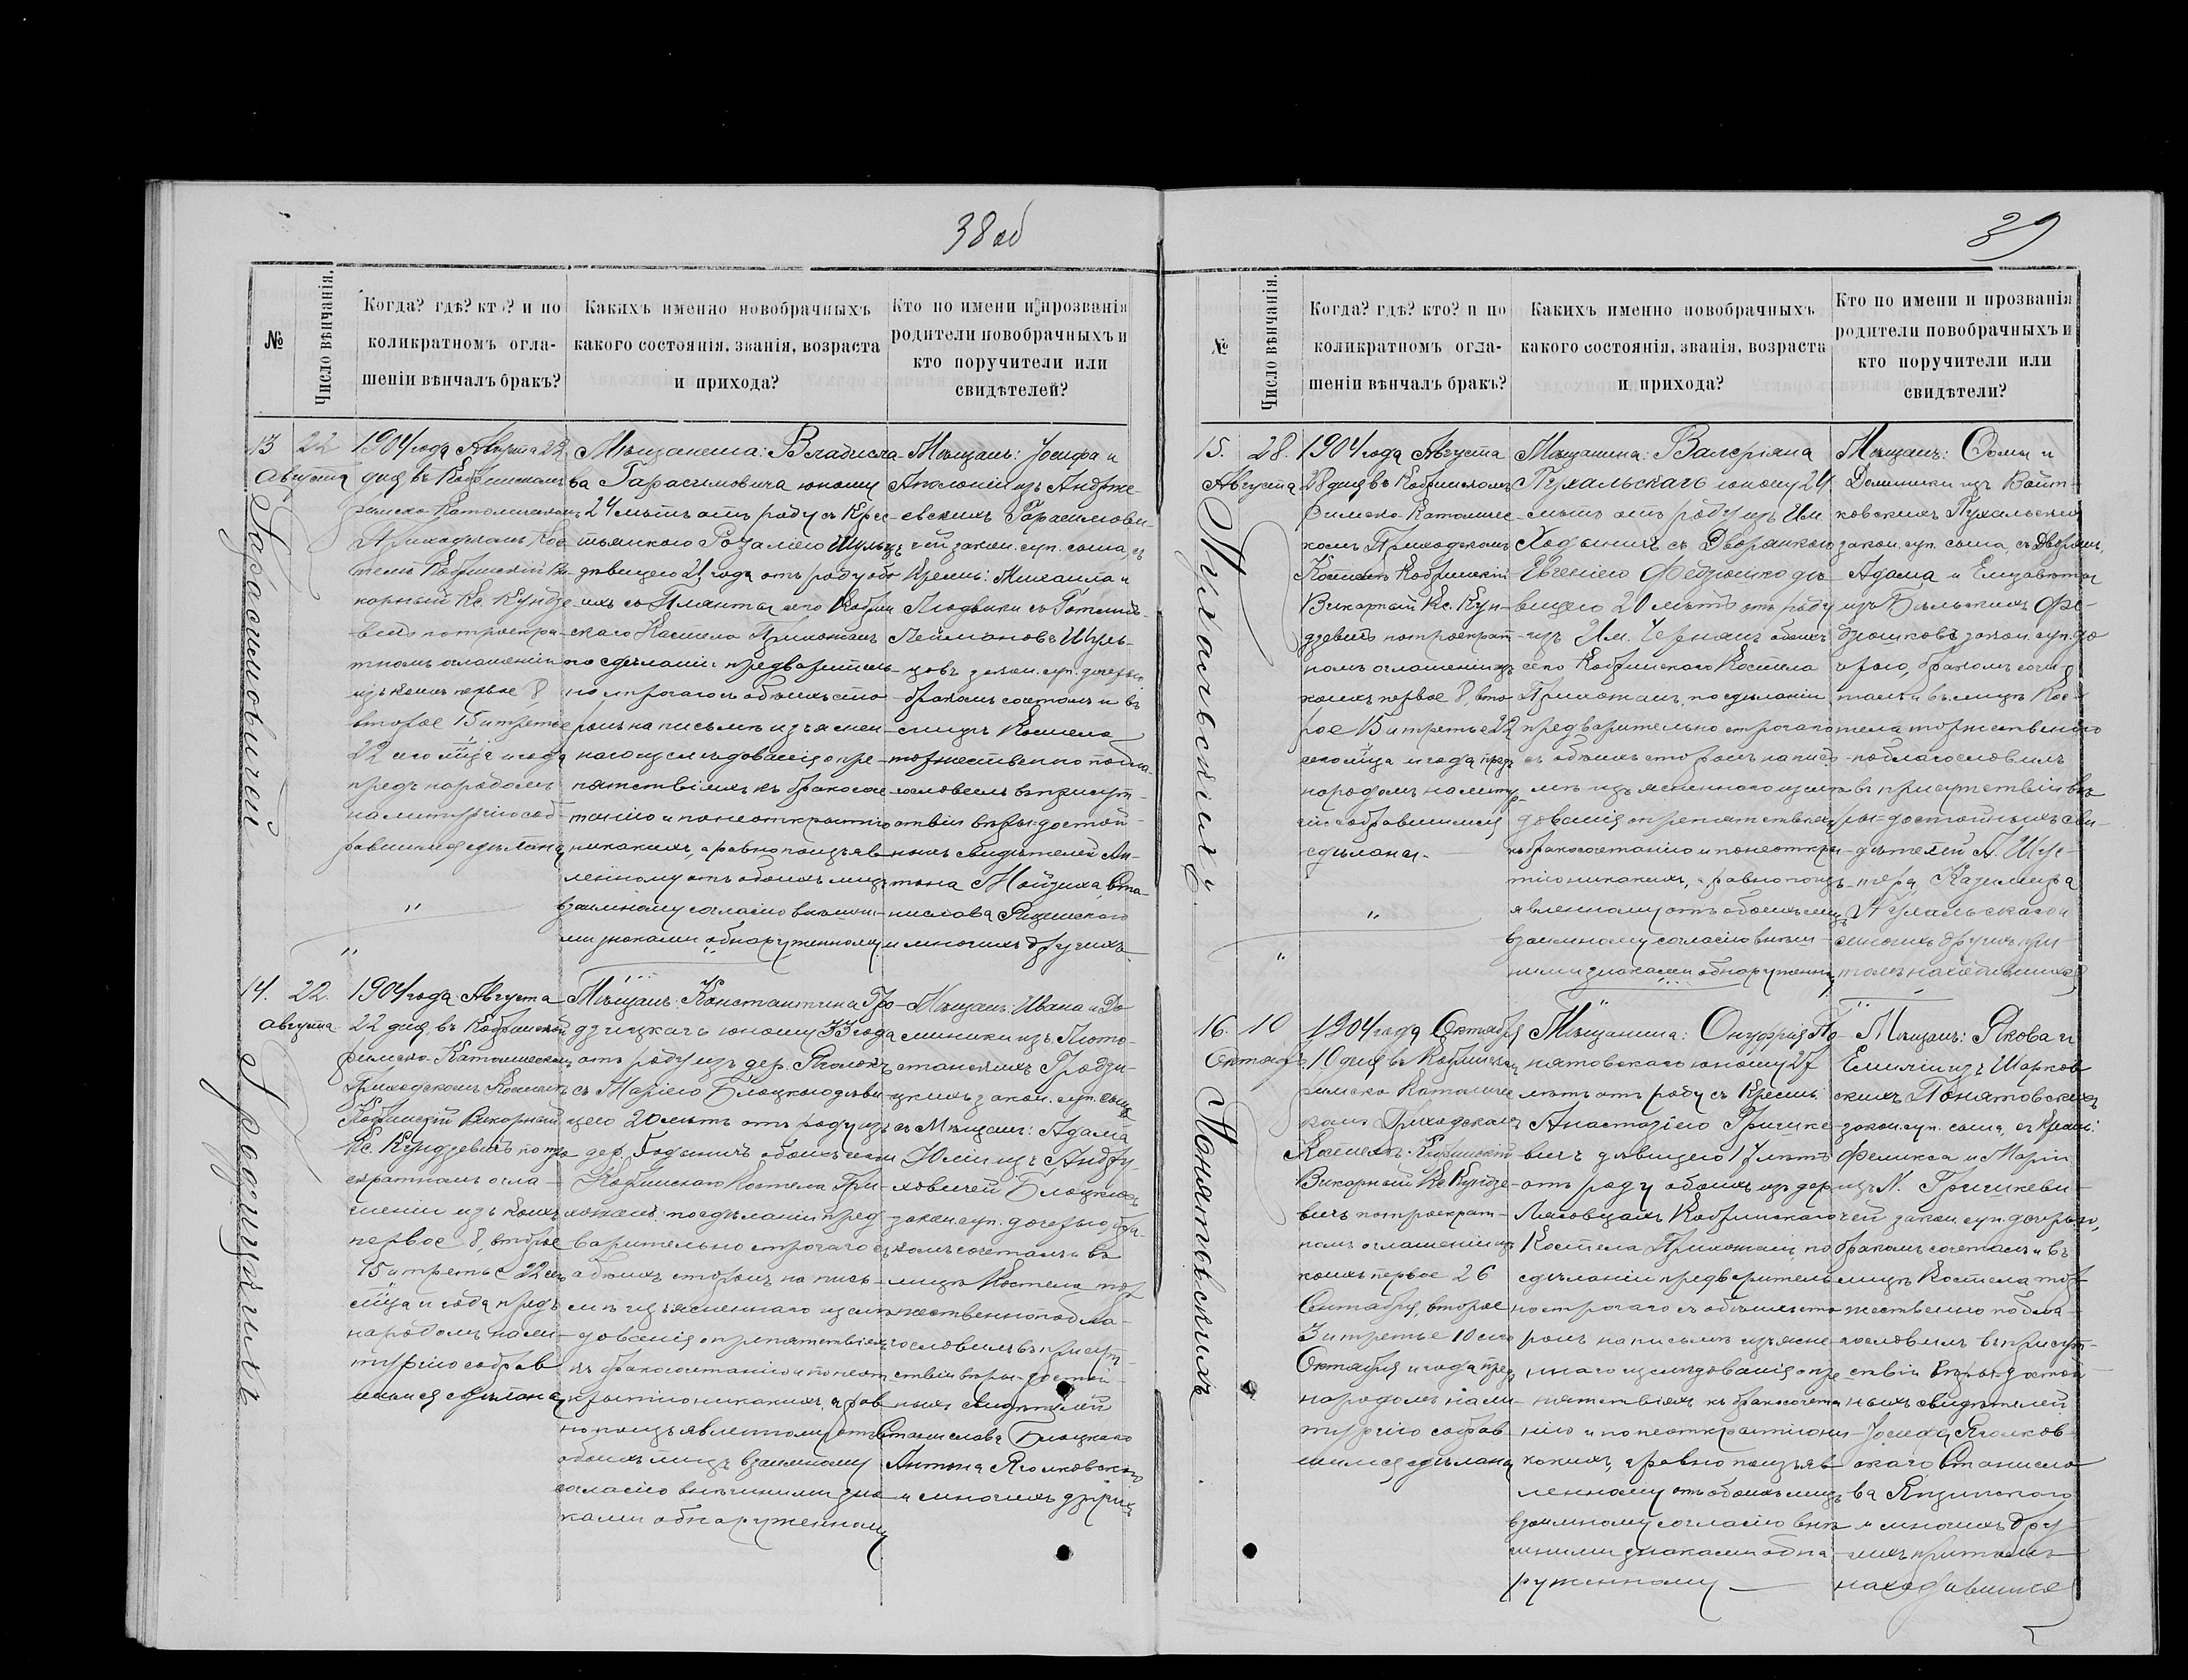 38 об
№
Число вѣнчанія.
Когда? гдѣ? кто? и по
коликратномъ огла-
шеніи вѣнчалъ бракъ?
Какихъ именно новобрачныхъ
какого состоянія, званія, возраста
и прихода?
Кто по имени и прозванія
родители новобрачныхъ и
кто поручители или
свидѣтелей?
13
22
Августа
Гарасимовичей
1904 года Августа 22
дня въ Кобринскомъ
римско-Католическомъ
Приходскомъ Кос-
телѣ Кобринскій Ви-
карный Кс. Кундзе-
вичъ по троекра-
тномъ оглашеніи
изъ коихъ первое 8,
второе 15 и третье
22 сего м-ца и года
предъ народомъ
на литургію соб-
равшимся сдѣлана,
Мѣщанина: Владисла-
ва Гарасимовича юношу
24 лѣтъ отъ роду съ Крес-
тьянкою Розаліею Шульцъ
дѣвицею 21 года отъ роду обо-
ихъ съ Планты сего Кобрин-
скаго Костела Прихожанъ
по сдѣланіи предваритель-
но строгаго съ обѣихъ сто-
ронъ на письмѣ изъяснен-
наго изслѣдованія о пре-
пятствіяхъ къ бракосоче-
танію и по неоткрытію
никакихъ, а равно по изъяв-
ленному отъ обоихъ лицъ
взаимному согласію внѣшни-
ми знаками обнаруженному.
Мѣщанъ: Іосифа и
Аполоніи изъ Андрже-
евскихъ Гарасимови-
чей закон. суп. сына, съ
Кресть: Михаила и
Людвики съ Готлибъ
Леймановъ Шуль-
цовъ закон. суп. дочерью
бракомъ сочеталъ и въ
лицѣ Костела
торжественно побла-
гословилъ въ присут-
ствіи вѣры-достой-
ныхъ Свидѣтелей Ан-
тона Мойзиха, Ста-
нислава Рищинскаго
и многихъ другихъ.
14.
22.
Августа
Гродзицкихъ
1904 года Августа
22 дня, въ Кобринскомъ
римско-Католическомъ
Приходскомъ Костелѣ
Кобринскій Викарный
Кс. Кундзевичъ по тро-
екратномъ огла-
шеніи изъ коихъ
первое 8, второе
15 и третье 22 сего
м-ца и года предъ
народомъ на ли-
тургію собрав-
шимся сдѣлана,
Мѣщан: Константина Гро-
дзицкаго юношу 33 года
отъ роду изъ дер. Яголокъ
съ Маріею Блоцкою дѣви-
цею 20 лѣтъ отъ роду изъ
дер. Ходыничъ обоихъ сего
Кобринскаго Костела При-
хожанъ по сдѣланіи пред-
варительно строгаго съ
обѣихъ сторонъ на пись-
мѣ изъясненнаго изслѣ-
дованія о препятствіяхъ
къ бракосочетанію и по неот-
крытію никакихъ, а рав-
но по изъявленному отъ
обоихъ лицъ взаимному
согласію внѣшними зна-
ками обнаруженному
Мѣщан: Ивана и До-
миники изъ Люто-
станскихъ Гродзи-
цкихъ закон. суп. сына
съ Мѣщан: Адама
и Юліи изъ Андру-
ховичей Блоцкихъ
закон. суп. дочерью, бра-
комъ сочеталъ и въ
лицѣ Костела тор-
жественно побла-
гословилъ въ присут-
ствіи вѣры-достой-
ныхъ Свидѣтелей
Станислава Блоцкаго
Антона Яголковскаго
и многихъ другихъ
39
№
Число вѣнчанія.
Когда? гдѣ? кто? и по
коликратномъ огла-
шеніи вѣнчалъ бракъ?
Какихъ именно новобрачныхъ
какого состоянія, званія, возраста
и прихода?
Кто по имени и прозванія
родители новобрачныхъ и
кто поручители или
свидѣтели?
15.
28.
Августа
Пухальскихъ
1904 года Августа
28 дня въ Кобринскомъ
Римско-Католичес-
комъ Приходскомъ
Костелѣ Кобринскій
Викарный Кс. Кун-
дзевичъ по троекрат-
номъ оглашеніи изъ
коихъ первое 8, вто-
рое 15 и третье 22
сего м-ца и года предъ
народомъ на литур-
гію собравшимся
сдѣлана.
Мѣщанина: Валеріяна
Пухальскаго юношу 24
лѣтъ отъ роду изъ Им.
Ходыничъ съ Дворянкою
Евгеніею Федзюшко дѣ-
вицею 20 лѣтъ отъ роду
изъ Им. Черняны обоихъ
сего Кобринскаго Костела
Прихожанъ, по сдѣланіи
предварительно строгаго
съ обѣихъ сторонъ на пись-
мѣ изъясненнаго изслѣ-
дованія о препятствіяхъ
къ бракосочетанію и по неоткры-
тію никакихъ, а равно по изъ-
явленному отъ обоихъ лицъ
взаимному согласію внѣш-
ними знаками обнаруженну
Мѣщанъ: Ѳомы и
Доминики изъ Войт-
ковскихъ Пухальскихъ
закон. суп. сына, съ Дворян.
Адама и Елизаветы
изъ Бѣльскихъ Фе-
дзюшковъ закон. суп. до-
черью, бракомъ соче-
талъ и въ лицѣ Кос-
тела торжественно
поблагословилъ
въ присутствіи вѣ-
ры-достойныхъ сви-
дѣтелей А. Шус-
тера, Казимира
Пухальскаго и
многихъ другихъ при
томъ находившихся
16.
10
Октября
Понятовскихъ
1904 года Октября
10 дня въ Кобринскомъ
римско Католичес-
комъ Приходскомъ
Костелѣ Кобринскій
Викарный Кс. Кундзе-
вичъ по троекрат-
номъ оглашеніи изъ
коихъ первое 26
Сентября, второе
3 и третье 10 сего
Октября и года предъ
народомъ на ли-
тургію собрав-
шимся сдѣлана
Мѣщанина: Онуфрія По-
нятовскаго юношу 27
лѣтъ отъ роду съ Кресть:
Анастазіею Гришке-
вичъ дѣвицею 17 лѣтъ
отъ роду обоихъ изъ дер.
Лясовцахъ Кобринскаго
Костела Прихожанъ, по
сдѣланіи предваритель-
но строгаго съ обѣихъ сто-
ронъ на письмѣ изъясне-
ннаго изслѣдованія о пре-
пятствіяхъ къ бракосочета-
нію и по неоткрытію ни-
какихъ, а равно по изъяв-
ленному отъ обоихъ лицъ
взаимному согласію внѣ-
шними знаками обна-
руженному
Мѣщанъ: Якова и
Емиліи изъ Шарков-
скихъ Понятовскихъ
закон. суп. сына, съ Кресть:
Феликса и Маріи
изъ N. Гришкеви-
чей закон. суп. дочерью,
бракомъ сочеталъ и въ
лицѣ Костела тор-
жественно побла-
гословилъ въ присут-
ствіи вѣры-достой-
ныхъ свидѣтелей
Іосифа Яголков-
скаго Станисла-
ва Янцинскаго
и многихъ дру-
гихъ при томъ
находившихся